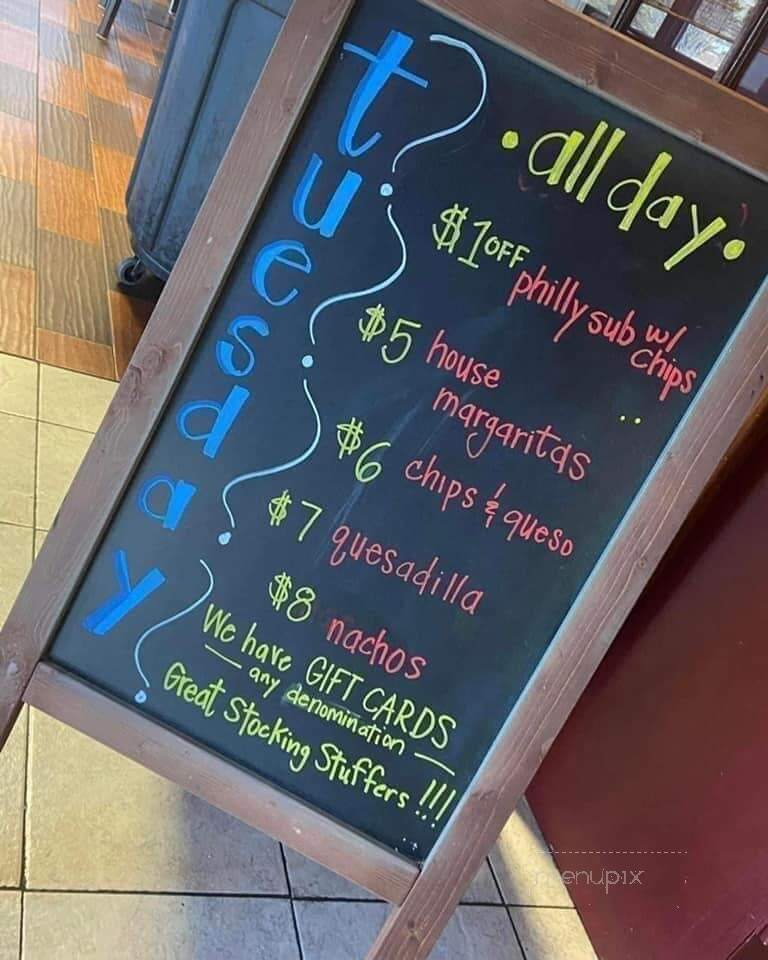 tuesday
• all day •
$1 OFF philly sub w/ chips
$5 house margaritas
$6 chips & queso
$7 quesadilla
$8 nachos
We have GIFT CARDS
— any denomination —
Great Stocking Stuffers !!!
menupix